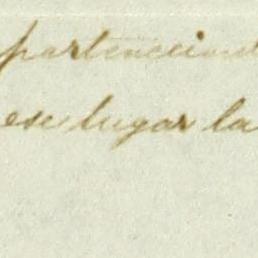 partenecient
ese lugar la